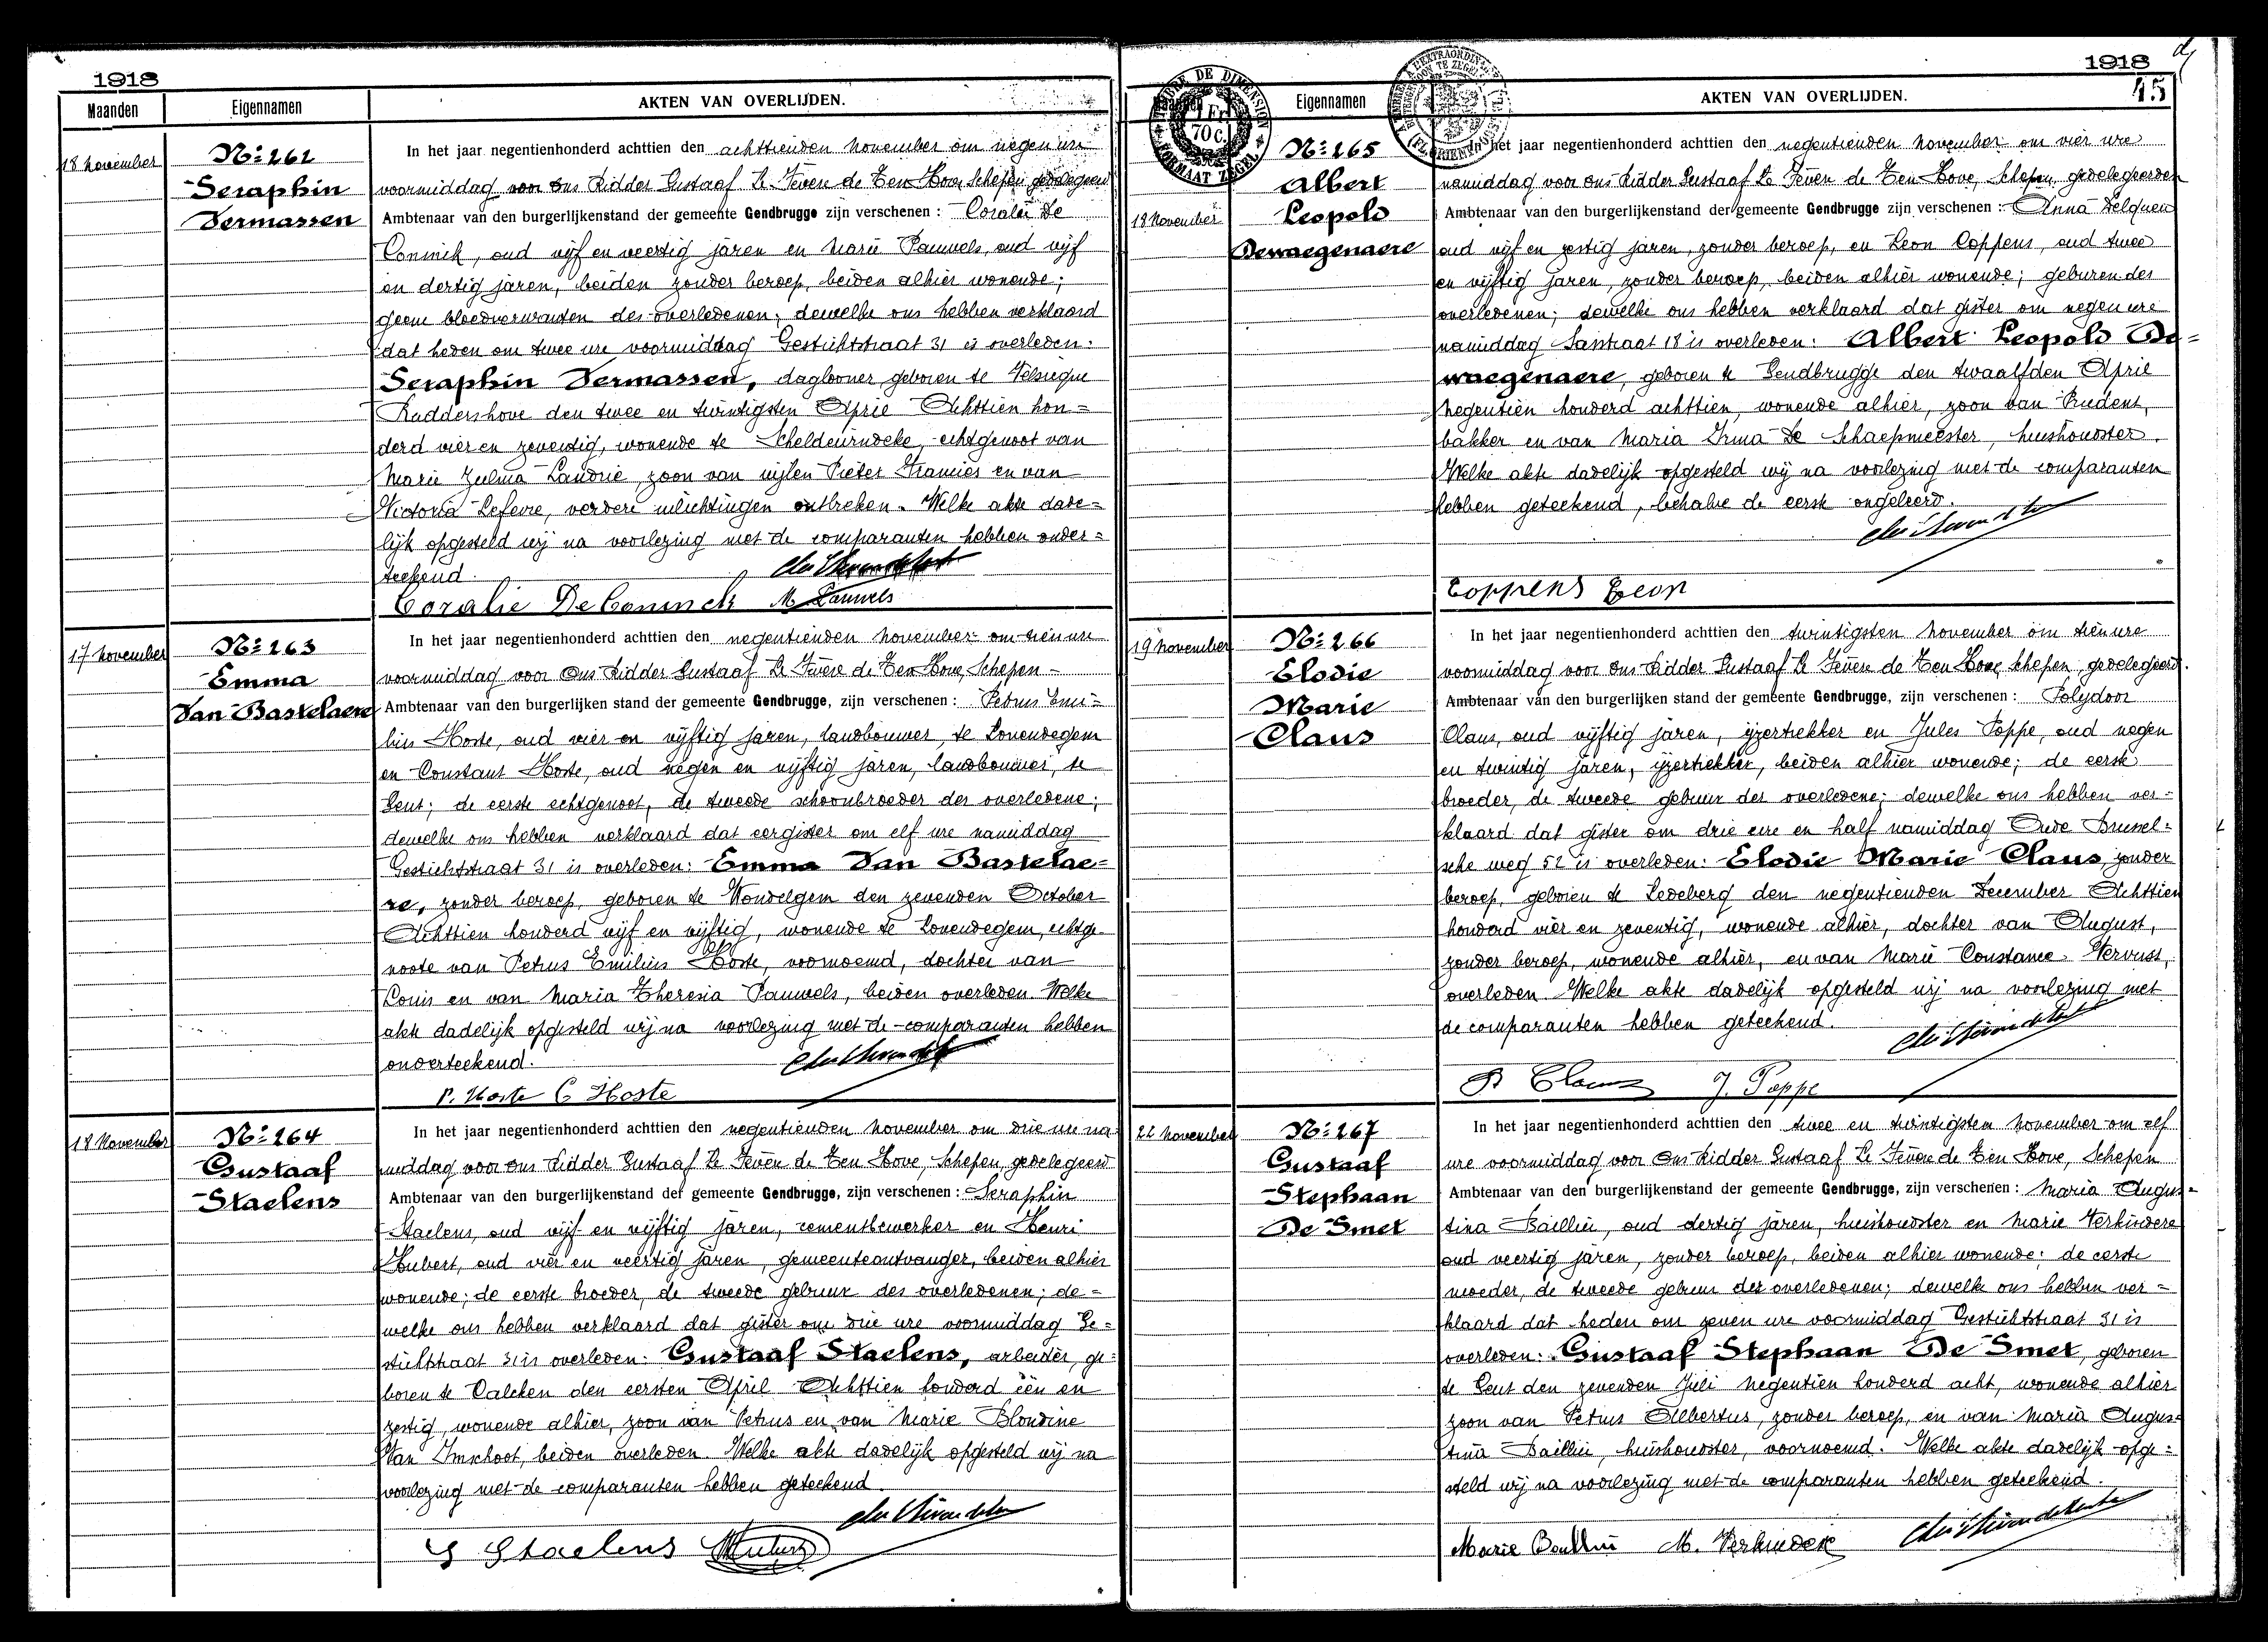 1918
Maanden Eigennamen AKTEN VAN OVERLIJDEN.
18 november
Nº 262
Seraphin
Vermassen
In het jaar negentienhonderd achttien den achttienden november om negen ure
voormiddag voor ons Ridder Gustaaf de Ten Hove, Schepen gedelegeerd
Ambtenaar van den burgerlijkenstand der gemeente Gendbrugge zijn verschenen : Coralie De
Coninck, oud vijf en veertig jaren en Marie Pauwels, oud vijf
en dertig jaren, beiden zonder beroep, beiden alhier wonende;
geene bloedverwanten des overledenen; dewelke ons hebben verklaard
dat heden om twee ure voormiddag Gestichtstraat 31 is overleden:
Seraphin Vermassen, daglooner, geboren te Velsieque
Ruddershove den twee en twintigsten April Achttien hon=
derd vier en zeventig, wonende te Scheldewindeke, echtgenoot van
Marie Zulma Landrie, zoon van wijlen Pieter Francies en van
Victoria Lefevre, verdere inlichtingen ontbreken. Welke akte dade=
lijk opgesteld wij na voorlezing met de comparanten hebben onder=
teekend.
Coralie DeConinck M Pauwels
17 november
Nº 263
Emma
Van Bastelaere
In het jaar negentienhonderd achttien den negentienden november om tien ure
voormiddag voor Ons Ridder Gustaaf de Ten Hove, Schepen
Ambtenaar van den burgerlijken stand der gemeente Gendbrugge, zijn verschenen : Petrus Emi=
lius Hoste, oud vier en vijftig jaren, landbouwer, te Lovendegem
en Constant Hoste, oud negen en vijftig jaren, landbouwer, te
Gent; de eerste echtgenoot, de tweede schoonbroeder der overledene;
dewelke ons hebben verklaard dat eergister om elf ure namiddag
Gestichtstraat 31 is overleden: Emma Van Bastelae=
re, zonder beroep, geboren te Wondelgem den zevenden October
Achttien honderd vijf en vijftig, wonende te Lovendegem, echtge=
noote van Petrus Emilius Hoste, voornoemd, dochter van
Louis en van Maria Theresia Pauwels, beiden overleden. Welke
akte dadelijk opgesteld wij na voorlezing met de comparanten hebben
onderteekend.
P. Hoste C Hoste
18 November
Nº 264
Gustaaf
Staelens
In het jaar negentienhonderd achttien den negentienden november om drie ure na
middag voor ons Ridder Gustaaf de Ten Hove, Schepen, gedelegeerd
Ambtenaar van den burgerlijkenstand der gemeente Gendbrugge, zijn verschenen : Seraphin
Staelens, oud vijf en vijftig jaren, cementbewerker en Henri
Hubert, oud vier en veertig jaren, gemeenteontvanger, beiden alhier
wonende; de eerste broeder, de tweede gebuur des overledenen; de=
welke ons hebben verklaard dat gister om drie ure voormiddag Ge=
stichtstraat 31 is overleden: Gustaaf Staelens, arbeider, ge=
boren te Calcken den eersten April Achttien honderd één en
zestig, wonende alhier, zoon van Petrus en van Marie Blondine
Van Imschoot, beiden overleden. Welke akte dadelijk opgesteld wij na
voorlezing met de comparanten hebben geteekend.
S Staelens HHubert
1918
45
Maanden Eigennamen AKTEN VAN OVERLIJDEN.
TIMBRE DE DIMENSION
1 Fr
70 C
FORMAAT ZEGEL
18 November
Nº 265
Albert
Leopold
Dewaegenaere
In het jaar negentienhonderd achttien den negentienden november om vier ure
namiddag voor ons Ridder Gustaaf de Ten Hove, Schepen, gedelegeerden
Ambtenaar van den burgerlijkenstand der gemeente Gendbrugge zijn verschenen : Anna
oud vijf en zestig jaren, zonder beroep, en Leon Coppens, oud twee
en vijftig jaren, zonder beroep, beiden alhier wonende; geburen des
overledenen; dewelke ons hebben verklaard dat gister om negen ure
namiddag 18 is overleden: Albert Leopold De=
waegenaere, geboren te Gendbrugge den twaalfden April
Negentien honderd achttien, wonende alhier, zoon van Prudent,
bakker en van Maria Irma De Schaepmeester, huishoudster.
Welke akte dadelijk opgesteld wij na voorlezing met de comparanten
hebben geteekend, behalve de eerste ongeleerd.
Coppens Leon
19 november
Nº 266
Elodie
Marie
Claus
In het jaar negentienhonderd achttien den twintigsten november om tien ure
voormiddag voor ons Ridder Gustaaf de Ten Hove, Schepen, gedelegeerd.
Ambtenaar van den burgerlijken stand der gemeente Gendbrugge, zijn verschenen : Polydoor
Claus, oud vijftig jaren, ijzertrekker en Jules Poppe, oud negen
en twintig jaren, ijzertrekker, beiden alhier wonende; de eerste
broeder, de tweede gebuur der overledene; dewelke ons hebben ver=
klaard dat gister om drie ure en half namiddag Oude Brussel=
sche weg 52 is overleden: Elodie Marie Claus, zonder
beroep, geboren te Ledeberg den negentienden December Achttien
honderd vier en zeventig, wonende alhier, dochter van August,
zonder beroep, wonende alhier, en van Marie Constance Vervust,
overleden. Welke akte dadelijk opgesteld wij na voorlezing met
de comparanten hebben geteekend.
P Claus J. Poppe
22 november
Nº 267
Gustaaf
Stephaan
De Smet
In het jaar negentienhonderd achttien den twee en twintigsten november om elf
ure voormiddag voor Ons Ridder Gustaaf de Ten Hove, Schepen
Ambtenaar van den burgerlijkenstand der gemeente Gendbrugge, zijn verschenen : Maria Augus=
tina Baillieu, oud dertig jaren, huishoudster en Marie Verkindere
oud veertig jaren, zonder beroep, beiden alhier wonende; de eerste
moeder, de tweede gebuur des overledenen; dewelke ons hebben ver=
klaard dat heden om zeven ure voormiddag Gestichtstraat 31 is
overleden: Gustaaf Stephaan De Smet, geboren
te Gent den zevenden Juli Negentien honderd acht, wonende alhier
zoon van Petrus Albertus, zonder beroep, en van Maria Augus=
tina Baillieu, huishoudster, voornoemd. Welke akte dadelijk opge=
steld wij na voorlezing met de comparanten hebben geteekend.
Marie M. Verkindere